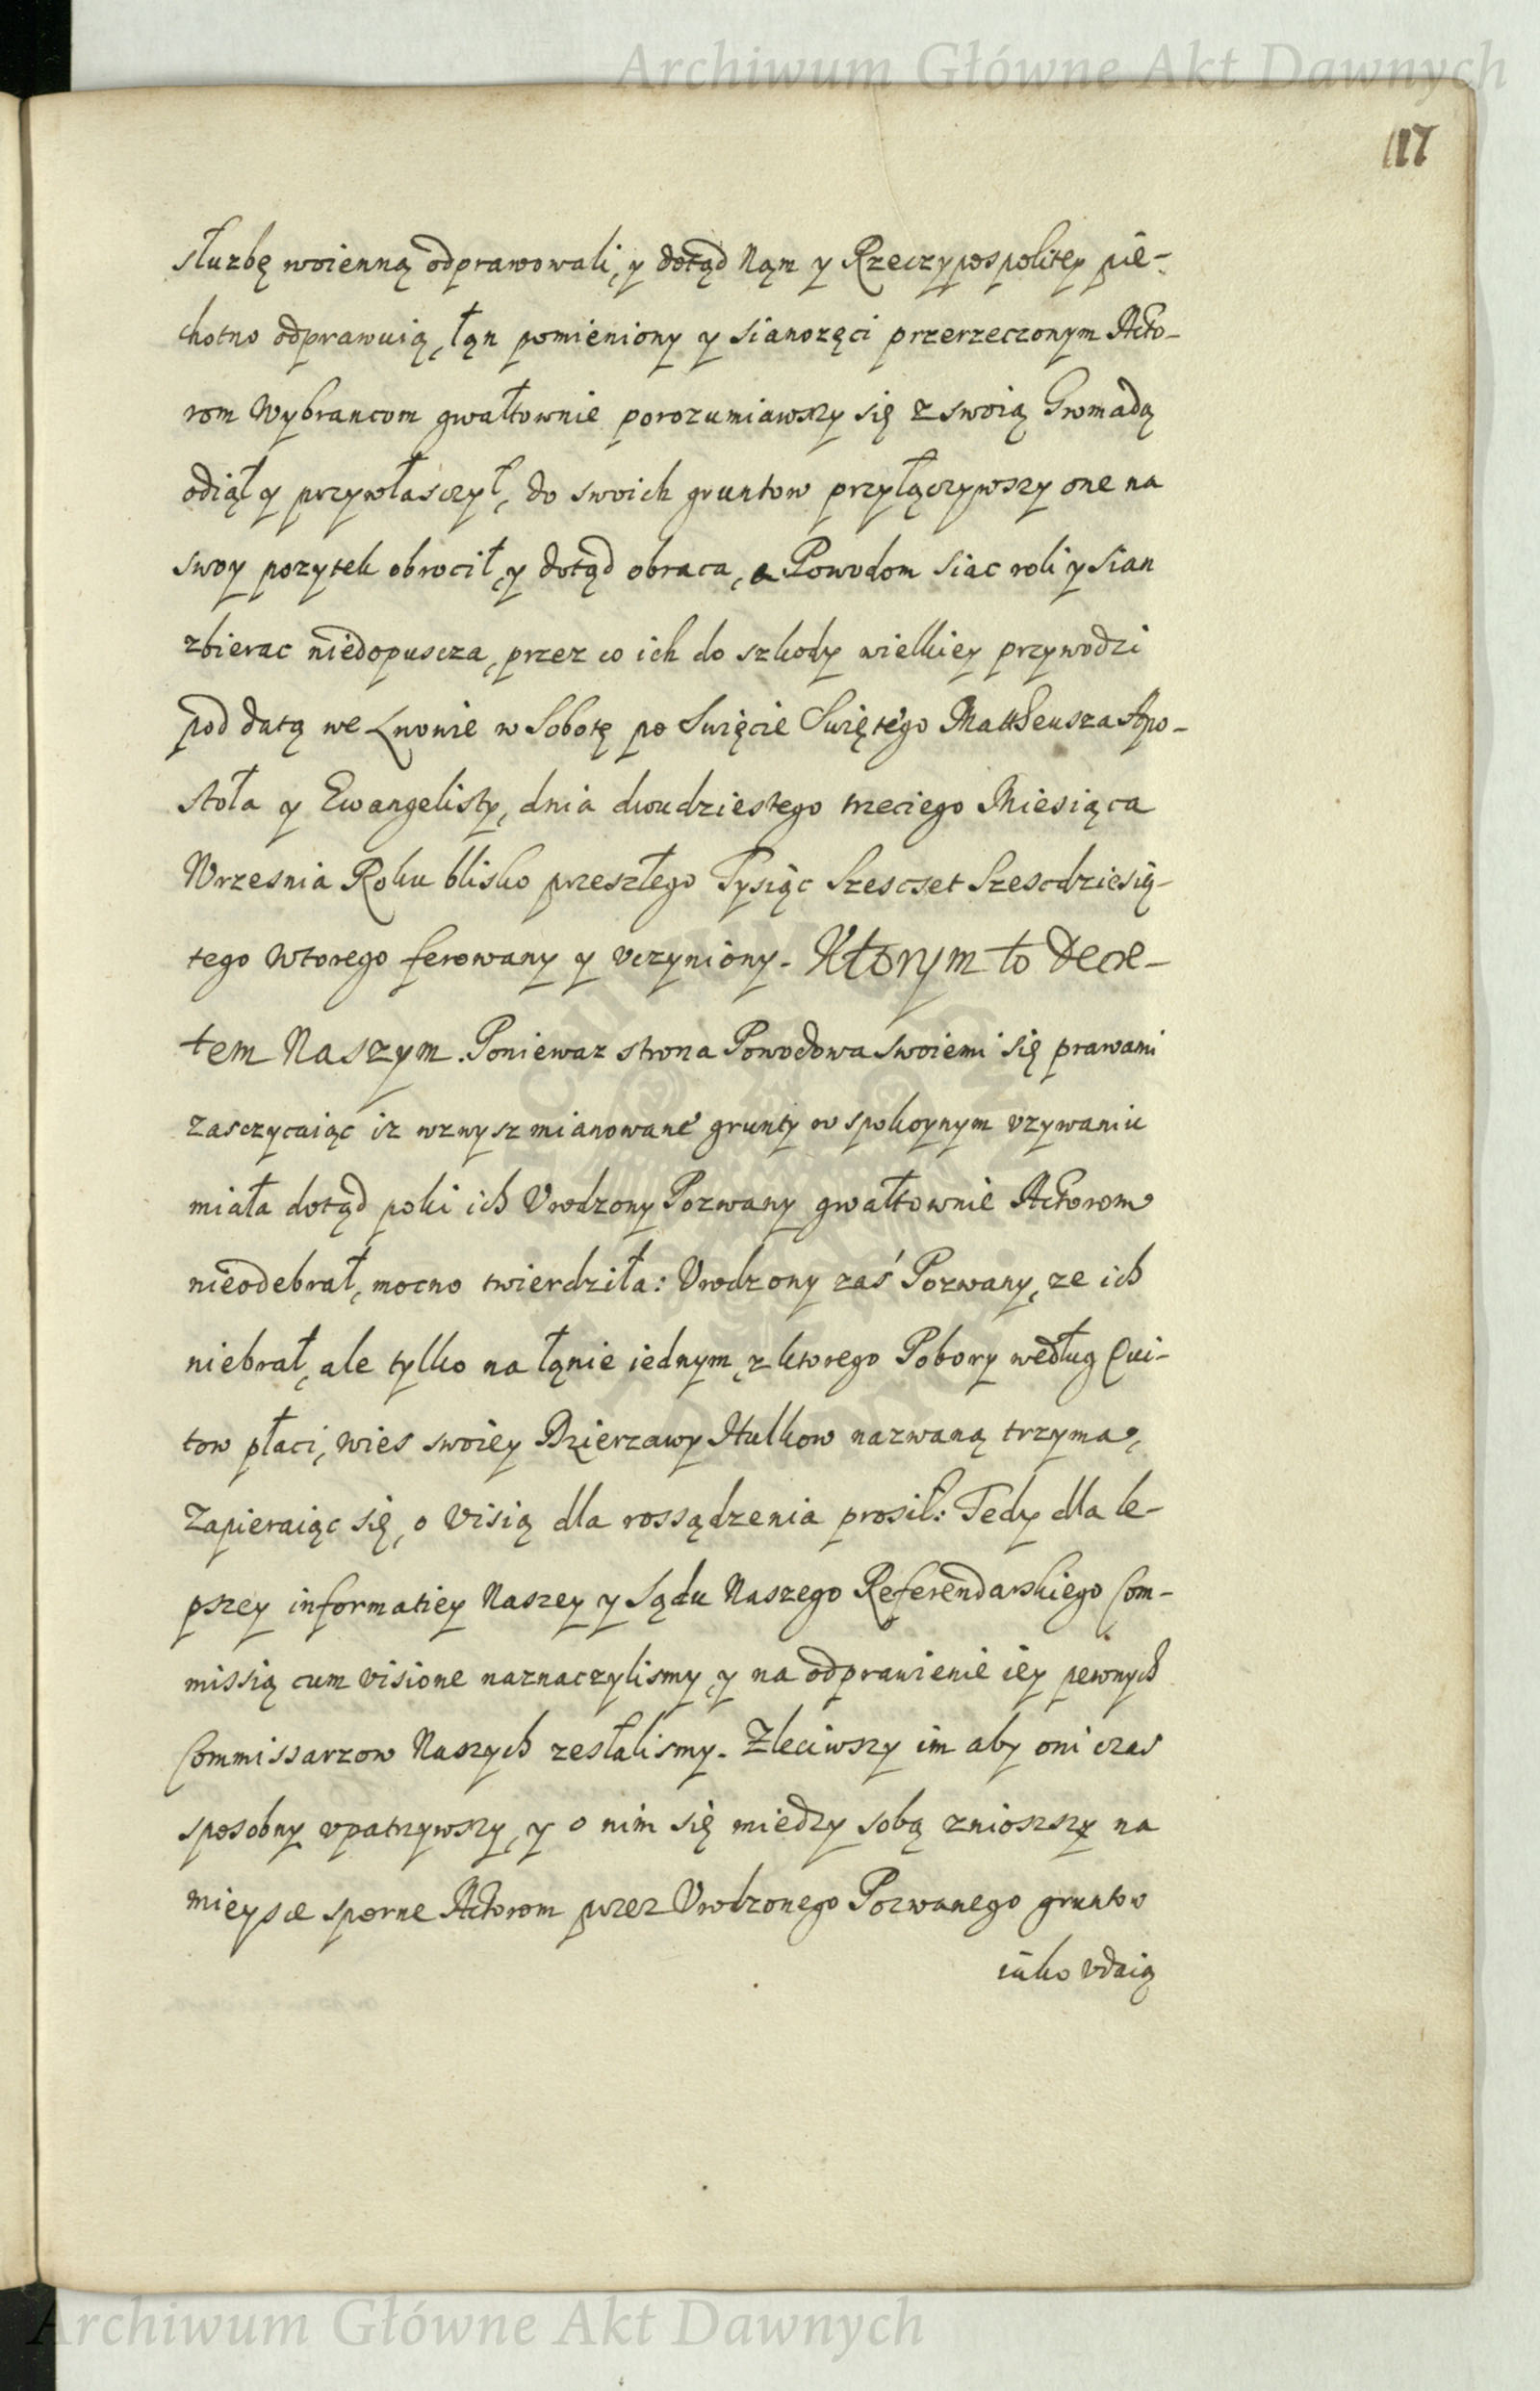 Archiwum Główne Akt Dawnych
117
służbę woienną odprawowali, y dotąd Nąm y Rzeczypospolitey pie-
chotno odprawuią, łąn pomieniony y sianozęci przerzeczonym Acto-
rom Wybrancom gwałtownie porozumiawszy się z swoią Gromadą
odiął y przywłasczył, do swoich gruntow przyłączywszy one na
swoy pozytek obrocił, y dotąd obraca, a Powodom siac roli y sian
zbierac niedopuscza, przez co ich do szkody wielkiey przywodzi
pod datą we Lwowie w Sobotę po Swięcie Swiętego Mattheusza Apo-
stoła y Ewangelisty, dnia dwudziestego trzeciego Miesiąca
Wrzesnia Roku blisko przeszłego Tysiąc Szescset Szescdziesią-
tego wtorego ferowany y vczyniony. Ktorym to Decre-
tem Naszym. Poniewaz strona Powodowa swoiemi się prawami
zasczycaiąc iz wzwysz mianowane grunty w spokoynym vzywaniu
miała dotąd poki ich Vrodzony Pozwany gwałtownie Actorom
nieodebrał, mocno twierdziła: Vrodzony zaś Pozwany, ze ich
niebrał, ale tylko na łąnie iednym, z ktorego Pobory według Qui-
tow płaci, wies swoiey Dzierzawy Hulkow nazwaną trzyma,
Zapieraiąc się, o Visią dla rossądzenia prosił: Tedy dla le-
pszey informatiey Naszey y Sądu Naszego Referendarskiego Com-
missią cum visione naznaczylismy, y na odprawienie iey pewnych
Commissarzow Naszych zesłalismy. Zleciwszy im aby oni czas
sposobny vpatrzywszy, y o nim się miedzy sobą zniozszy na
mieysce sporne Actorom przez Vrodzonego Pozwanego gruntow
iako vdaią
Archiwum Główne Akt Dawnych